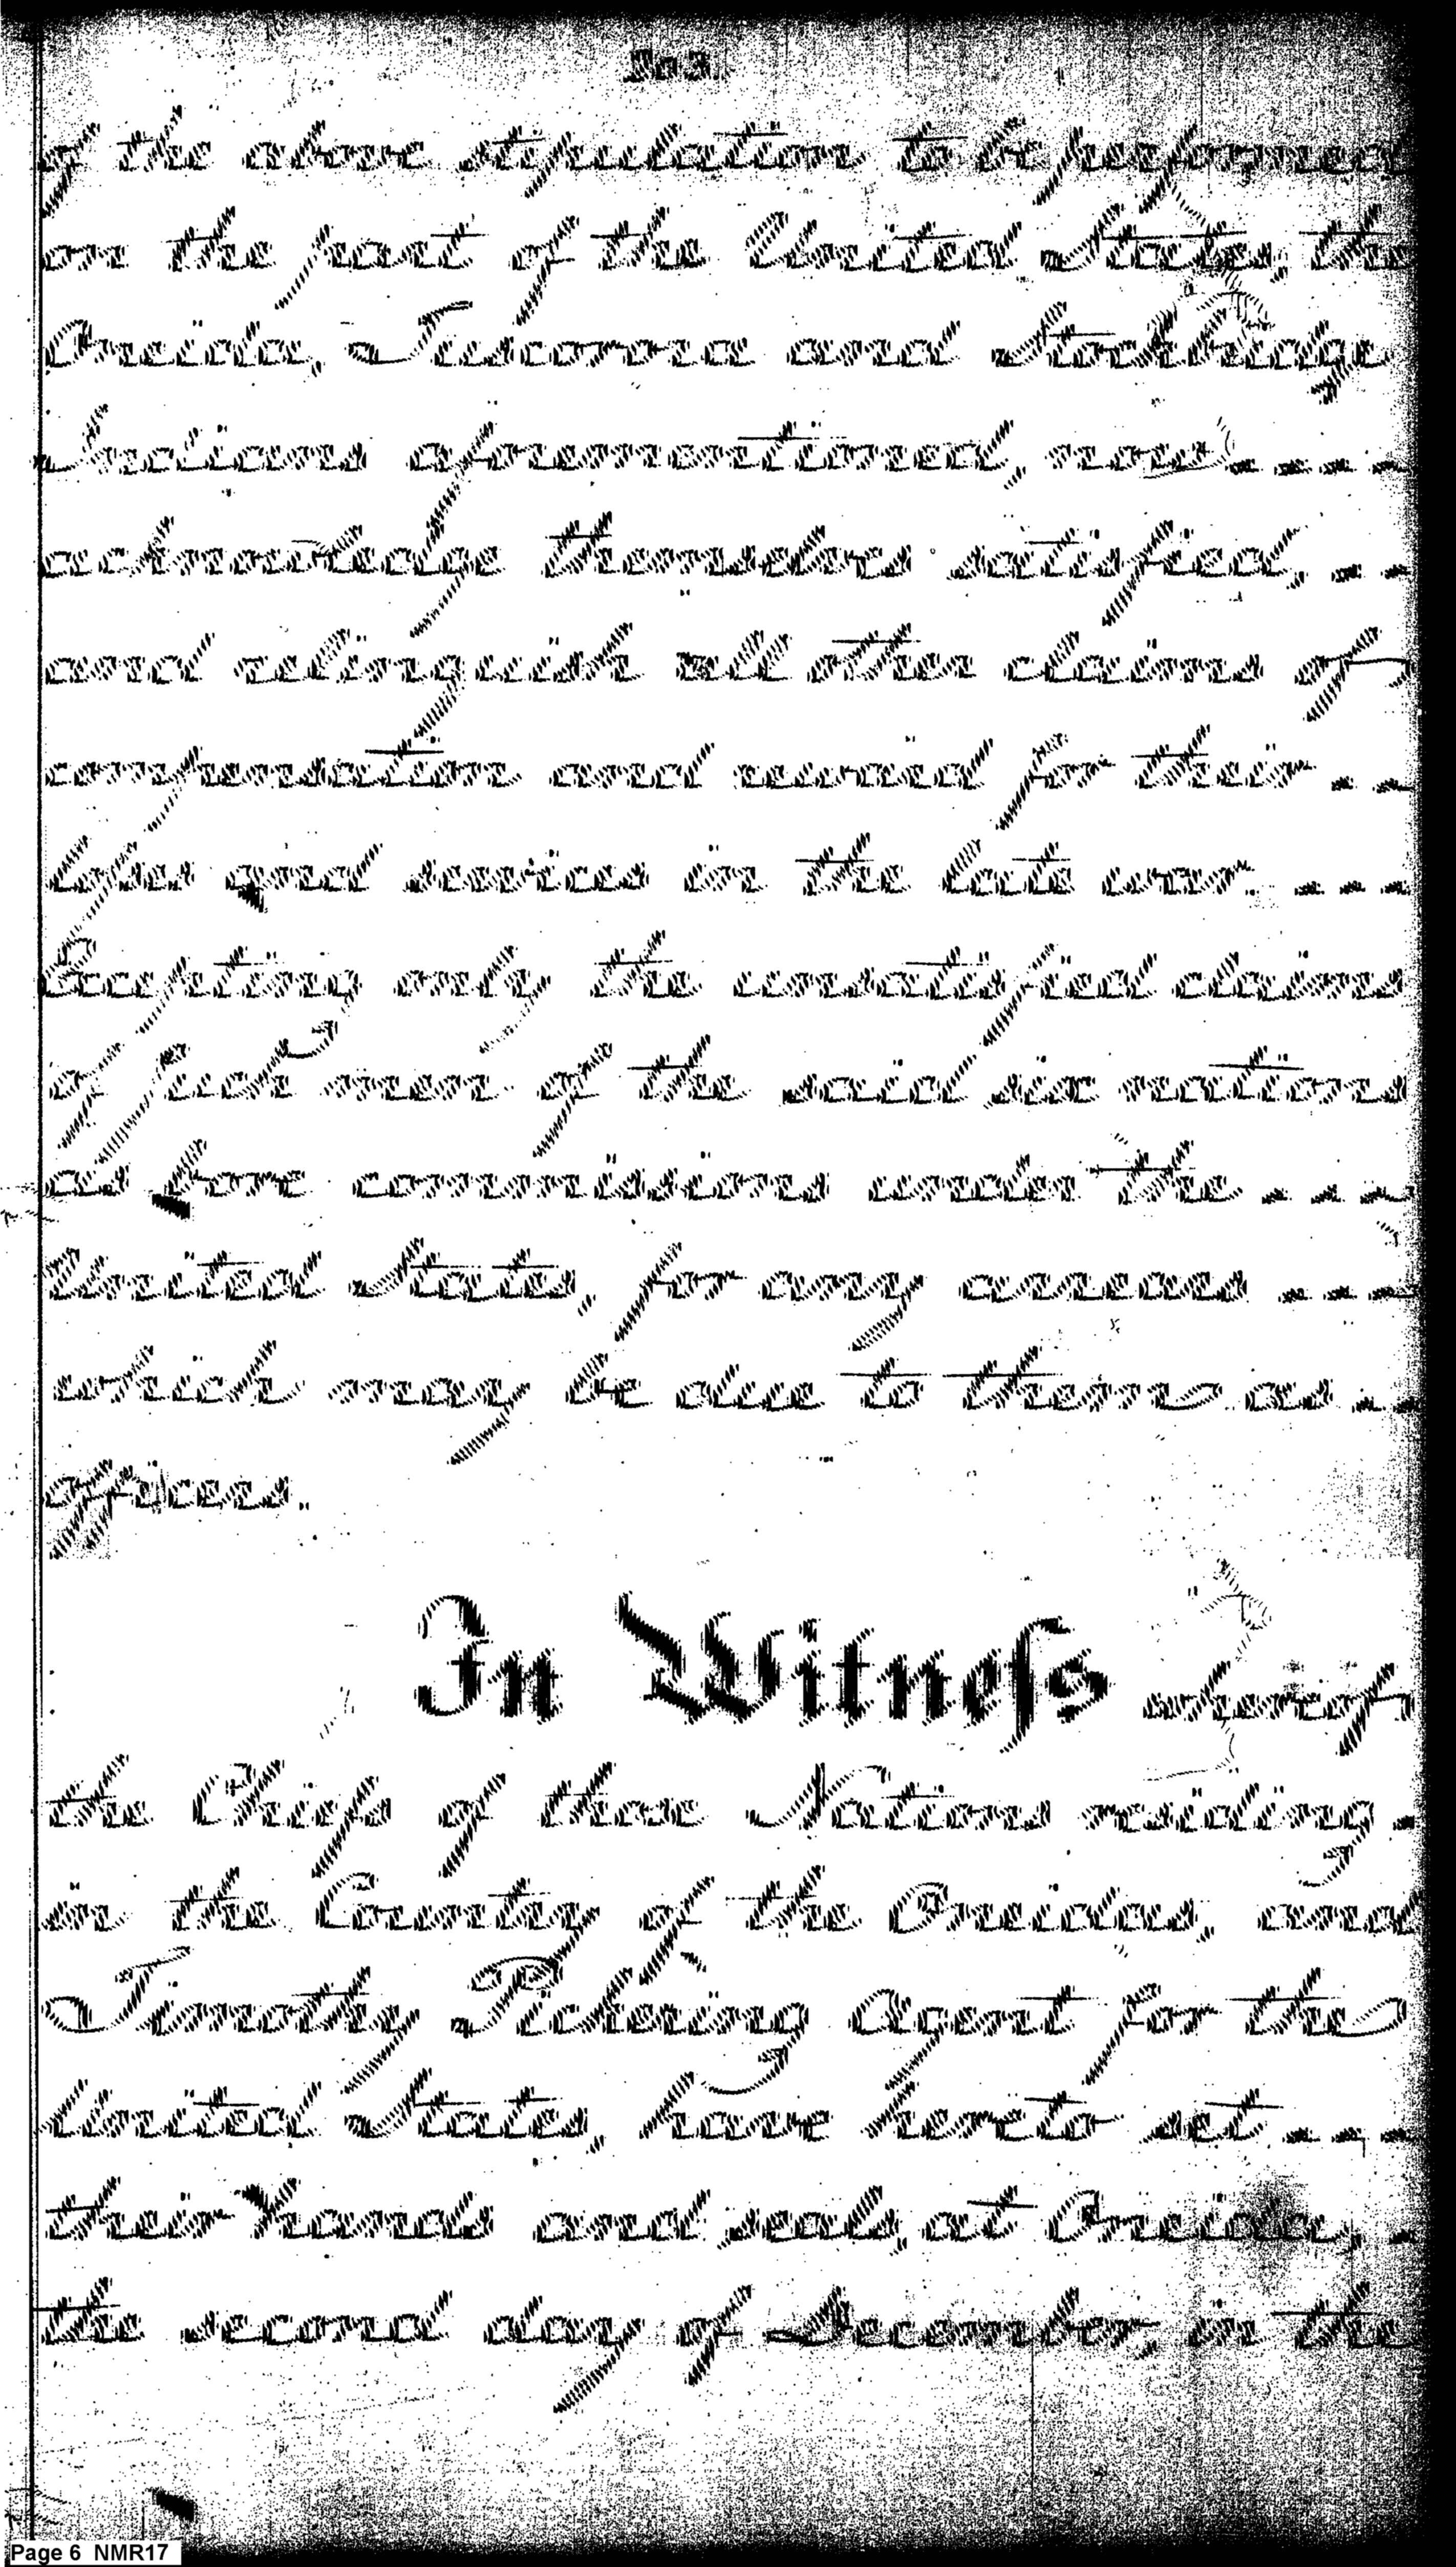 203.
of the above stipulation to be performed
on the part of the United States, the
Oneida, Tuscorora and Stockbridge
Indians aforementioned, now ----
acknowledge themselves satisfied, --
and relinquish all other claims of
compensation and reward for their --
loses and services in the late war. ---
Excepting only the unsatisfied claims
of such men of the said six nations
as bore commissions under the ---
United States, for any arrears ---
which may be due to them as --
officers.
In Witneſs whereof
the Chiefs of those Nations residing -
in the Country of the Oneidas, and
Timothy Pickering Agent for the
United States, have hereto set ----
their hands and seals, at Oneida, -
the second day of December, in the
Page 6 NMR17